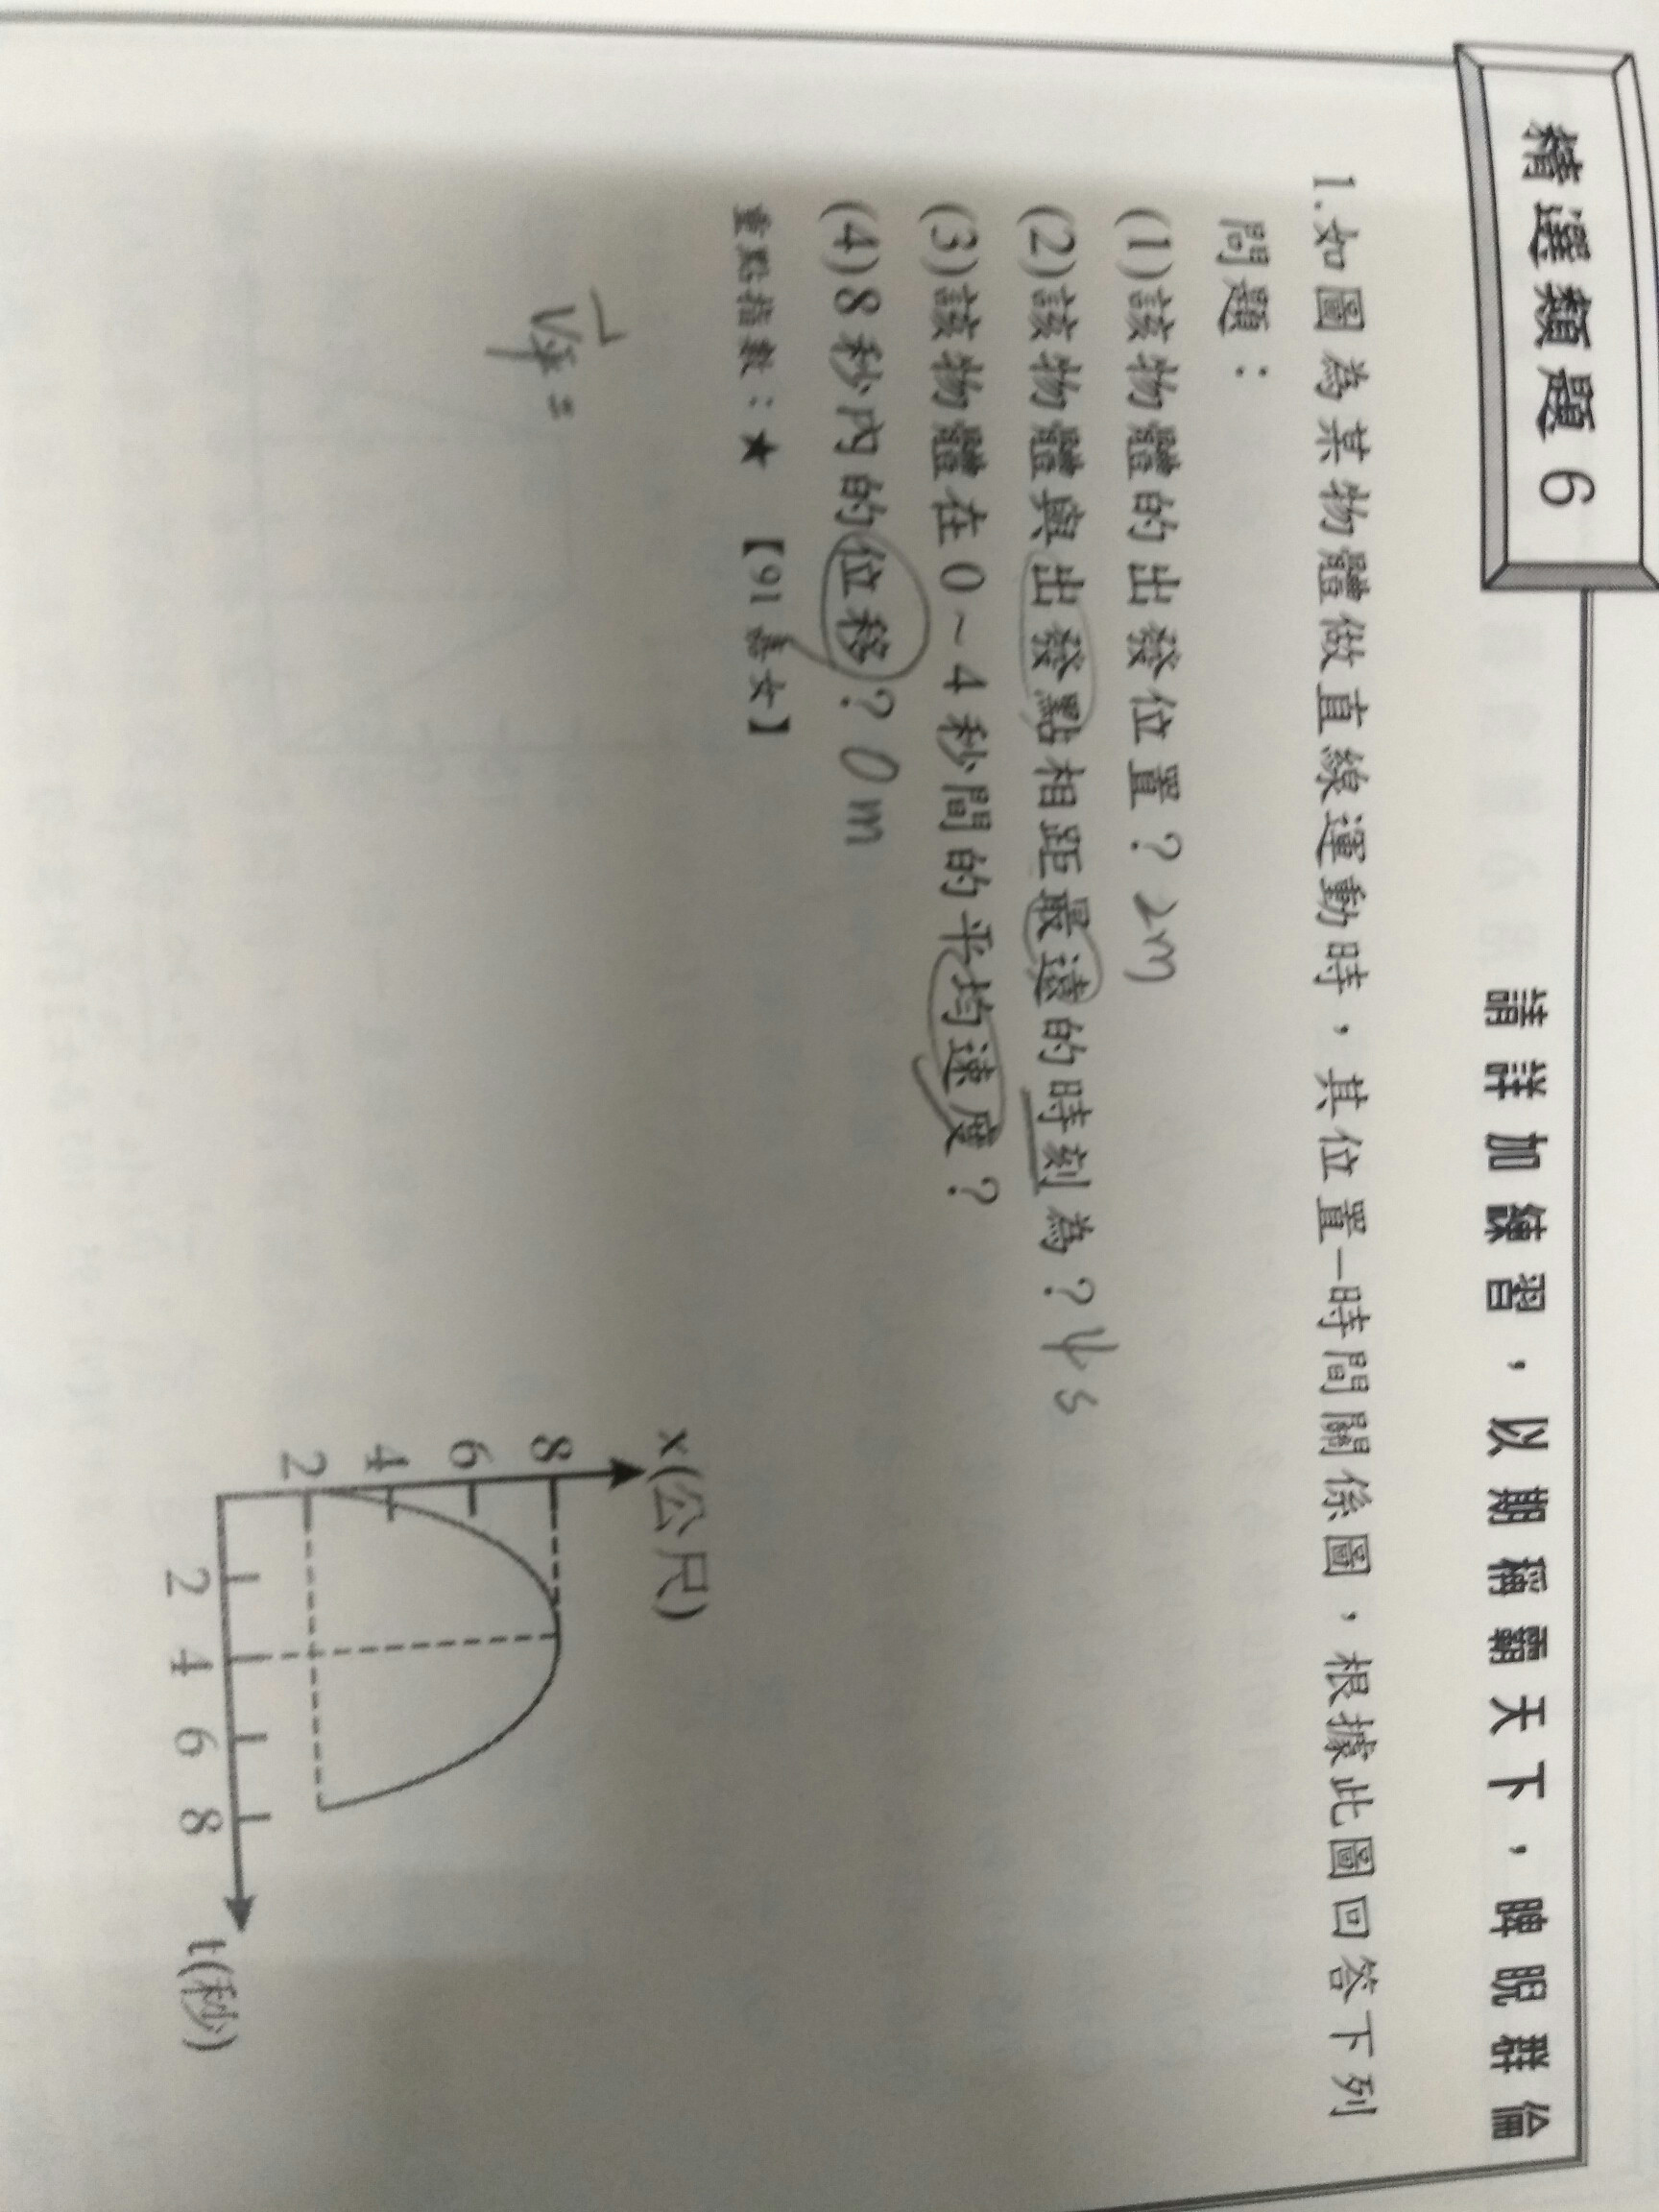 精選類題 6
請詳加練習，以期稱霸天下，睥睨群倫
1.如圖為某物體做直線運動時，其位置－時間關係圖，根據此圖回答下列
問題：
(1)該物體的出發位置？2m
(2)該物體與出發點相距最遠的時刻為？4s
(3)該物體在0～4秒間的平均速度？
(4)8秒內的位移？0m
重點指數：★ 【91嘉女】
V平=
x(公尺)
8
6
4
2
2 4 6 8 t(秒)